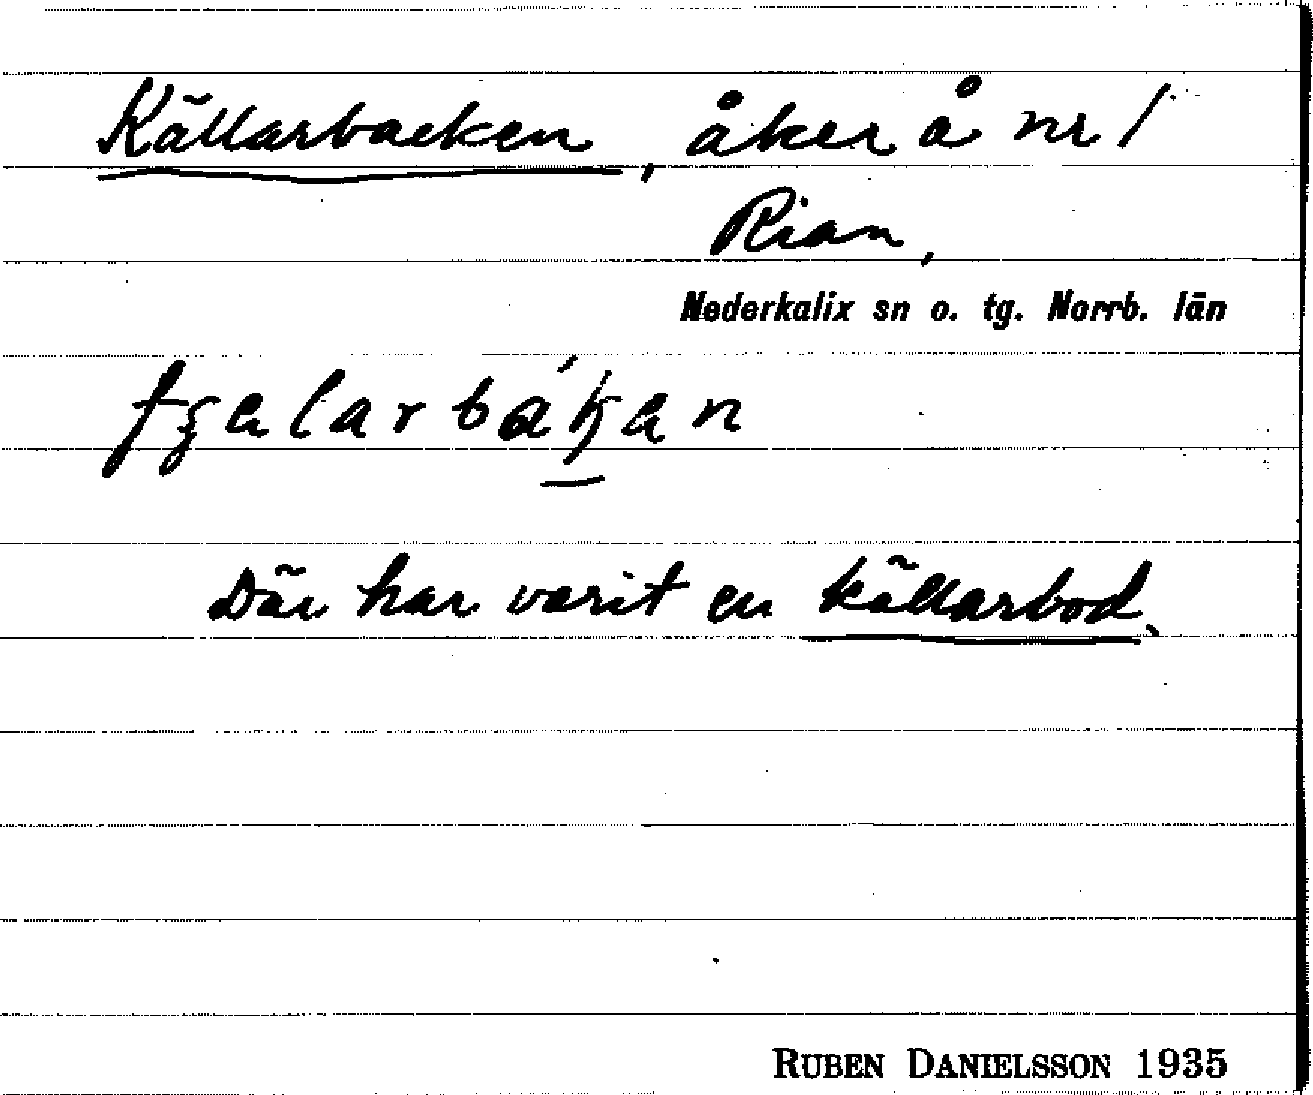 Källarbacken, åker å nr 1
Rian,
Nederkalix sn o. tg. Norrb. län
Där har varit en källarbod.
RUBEN DANIELSSON 1935